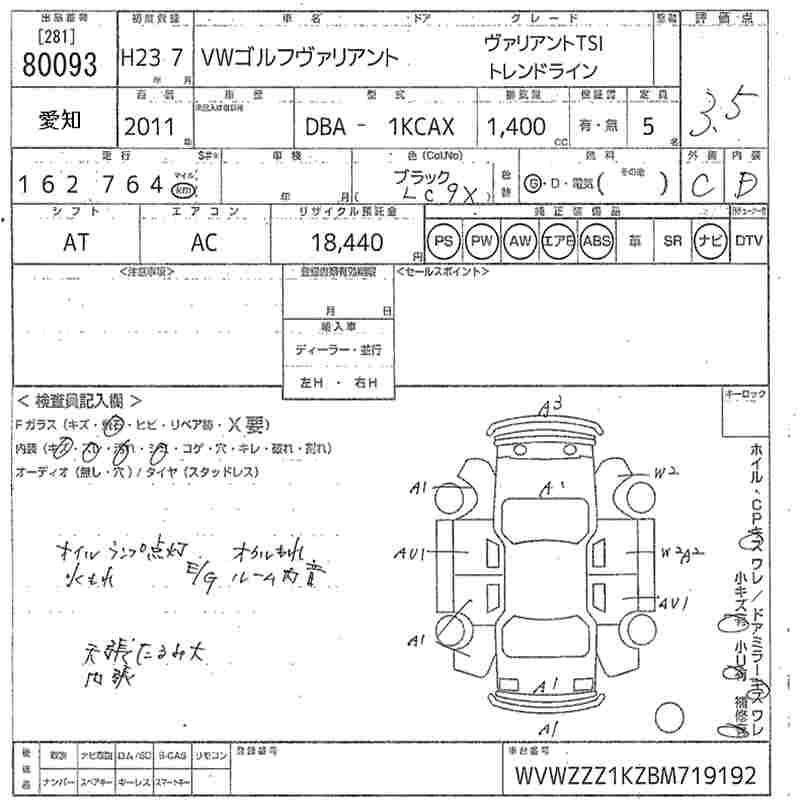 出品番号 初度登録 車名 ドア グレード 整備 評価点
[281]
80093 H23 7 VWゴルフヴァリアント ヴァリアントTSI
トレンドライン
年 月
3.5
愛知 車歴 型式 排気量 保証書 定員
2011 DBA - 1KCAX 1,400 有・無 5
年 CC 名
走行 S#* 車検 色(Col.No) 燃料 外装 内装
162 764 マイル km 年 月 ブラック LC9X G・D・電気( その他 ) C D
シフト エアコン リサイクル預託金 純正装備品
AT AC 18,440円 PS PW AW エアB ABS 革 SR ナビ DTV
<注意事項> <セールスポイント>
月 日
輸入車
ディーラー・並行
左H ・ 右H
<検査員記入欄> キーロック
Fガラス(キズ・飛石・ヒビ・リペア跡・X要)
内装(キズ・スレ・汚れ・シミ・コゲ・穴・キレ・破れ・割れ)
オーディオ(無し・穴)/タイヤ(スタッドレス)
A3
A1 A1 W2
AU1 W2A2
AU1
A1
A1
A1
オイルランプ点灯 オイルもれ
水もれ E/G ルーム内音
天張たるみ大
内張
ホイル・CPキズワレ/ドアミラーキズワレ
小キズ有 小凹有 補修有
後送品 取説 ナビ取説 ROM/SD B-CAS リモコン 登録番号 車台番号
ナンバー スペアキー キーレス スマートキー WVWZZZ1KZBM719192